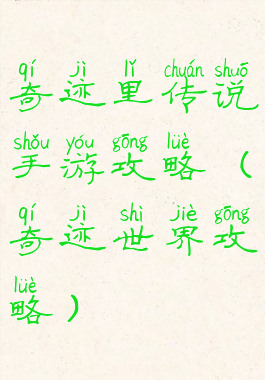 qí jì lǐ chuán shuō
奇迹里传说
shǒu yóu gōng lüè
手游攻略（
qí jì shì jiè gōng
奇迹世界攻
lüè
略）